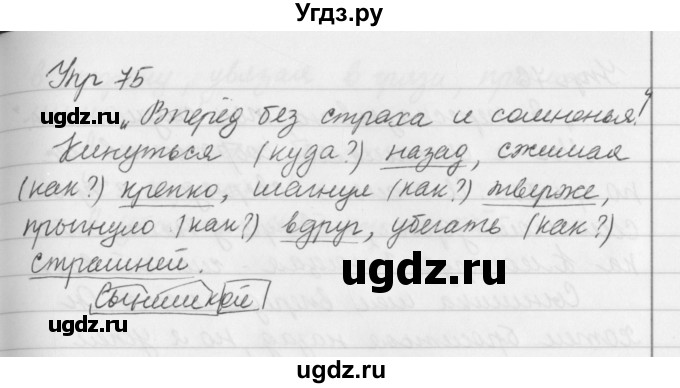 Угдз.ру
Упр 75
„Вперёд без страха и сомненья!"
Кинуться (куда?) назад, сжимая
(как?) крепко, шагнул (как?) тверже,
прыгнуло (как?) вдруг, убегать (как?)
страшней.
Сынишкой
ugdz.ru
ugdz.ru
ugdz.ru
ugdz.ru
ugdz.ru
ugdz.ru